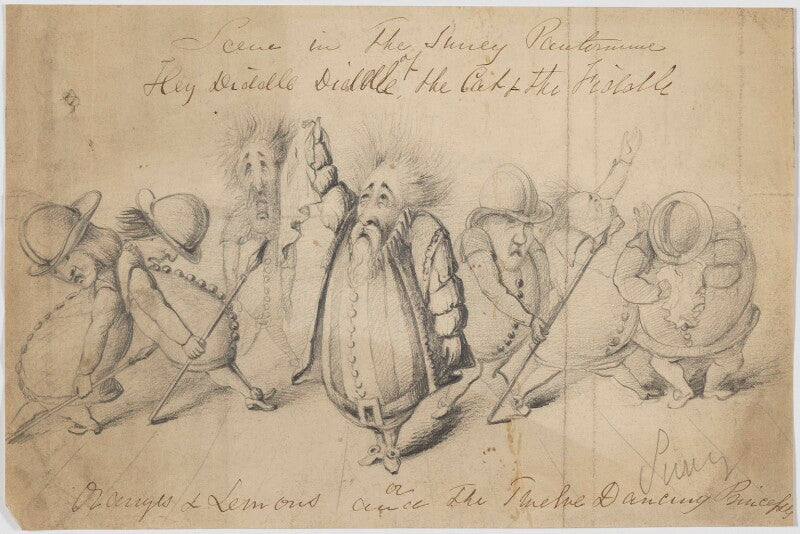 Scene in the Surrey Pantomime
of
Hey Diddle Diddle, the Cat & the Fiddle
Surrey
or
Oranges & Lemons and the Twelve Dancing Princesses